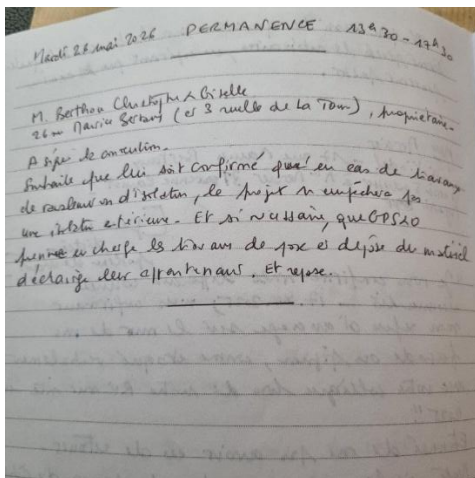 Mardi 26 mai 2026 PERMANENCE 13h30 - 17h30
M. Berthou Christophe & Giselle
26 Maurice Bertaux (et 3 ruelle de la Tour), propriétaire.
A signé la convention.
Souhaite que lui soit confirmé qu'en cas de travaux
de ravalement ou d'isolation, le projet n'empêchera pas
une isolation extérieure. Et si nécessaire, que GPS&O
prenne en charge les travaux de pose et dépose du matériel
d'éclairage leur appartenant. Et repose.